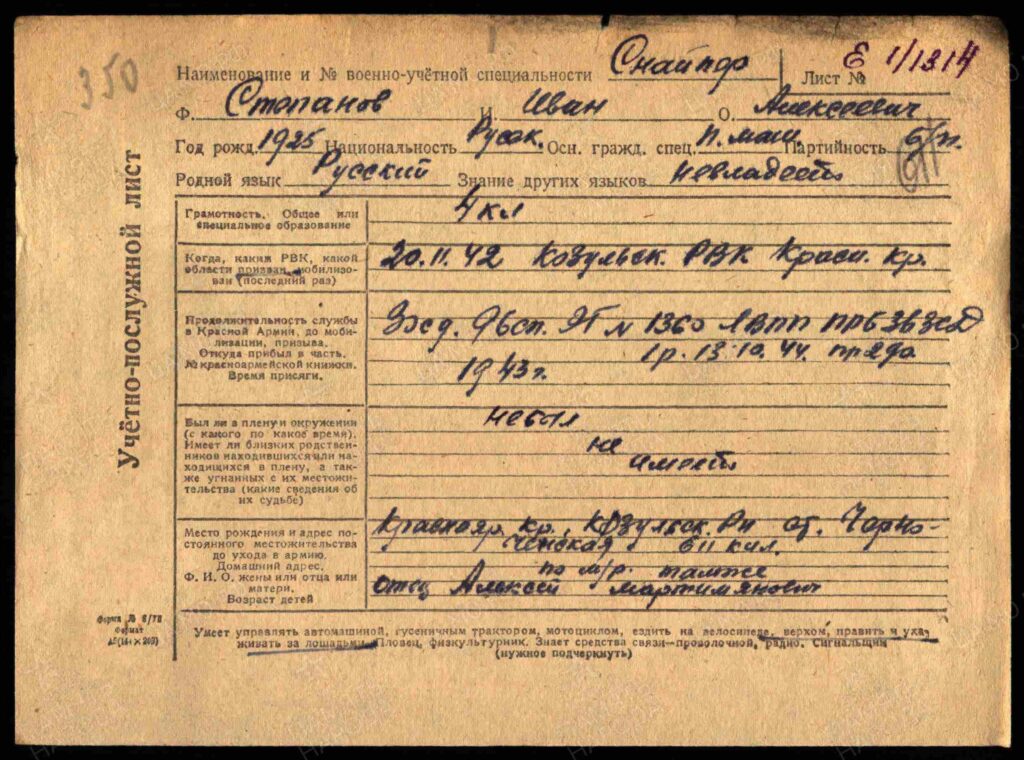 350
Наименование и № военно-учётной специальности Снайпер Лист № Е 1/1314
Ф. Степанов И. Иван О. Алексеевич
Год рожд. 1925 Национальность Русск. Осн. гражд. спец. П. маш. Партийность б/п.
Родной язык Русский Знание других языков невладеет
Учётно-послужной лист
Грамотность. Общее или специальное образование
4 кл
Когда, каким РВК, какой области призван, мобилизован (последний раз)
20.11.42 Козульск. РВК Красн. кр.
Продолжительность службы в Красной Армии, до мобилизации, призыва.
Откуда прибыл в часть.
№ красноармейской книжки.
Время присяги.
1360
1р. 13.10.44.
1943 г.
Был ли в плену и окружении (с какого по какое время).
Имеет ли близких родственников находившихся или находящихся в плену, а также угнанных с их местожительства (какие сведения об их судьбе)
небыл
не
имеет
Место рождения и адрес постоянного местожительства до ухода в армию.
Домашний адрес.
Ф. И. О. жены или отца или матери.
Возраст детей
Краснояр. кр., Козульск. Рн ст. Черно-
ченская
по м/р. тамже
отец Алексей Мартимянович
Форма № 6/УП
Формат
Умеет управлять автомашиной, гусеничным трактором, мотоциклом, ездить на велосипеде, верхом, править и уха-
живать за лошадьми. Пловец, физкультурник. Знает средства связи—проволочной, радио. Сигнальщик
(нужное подчеркнуть)